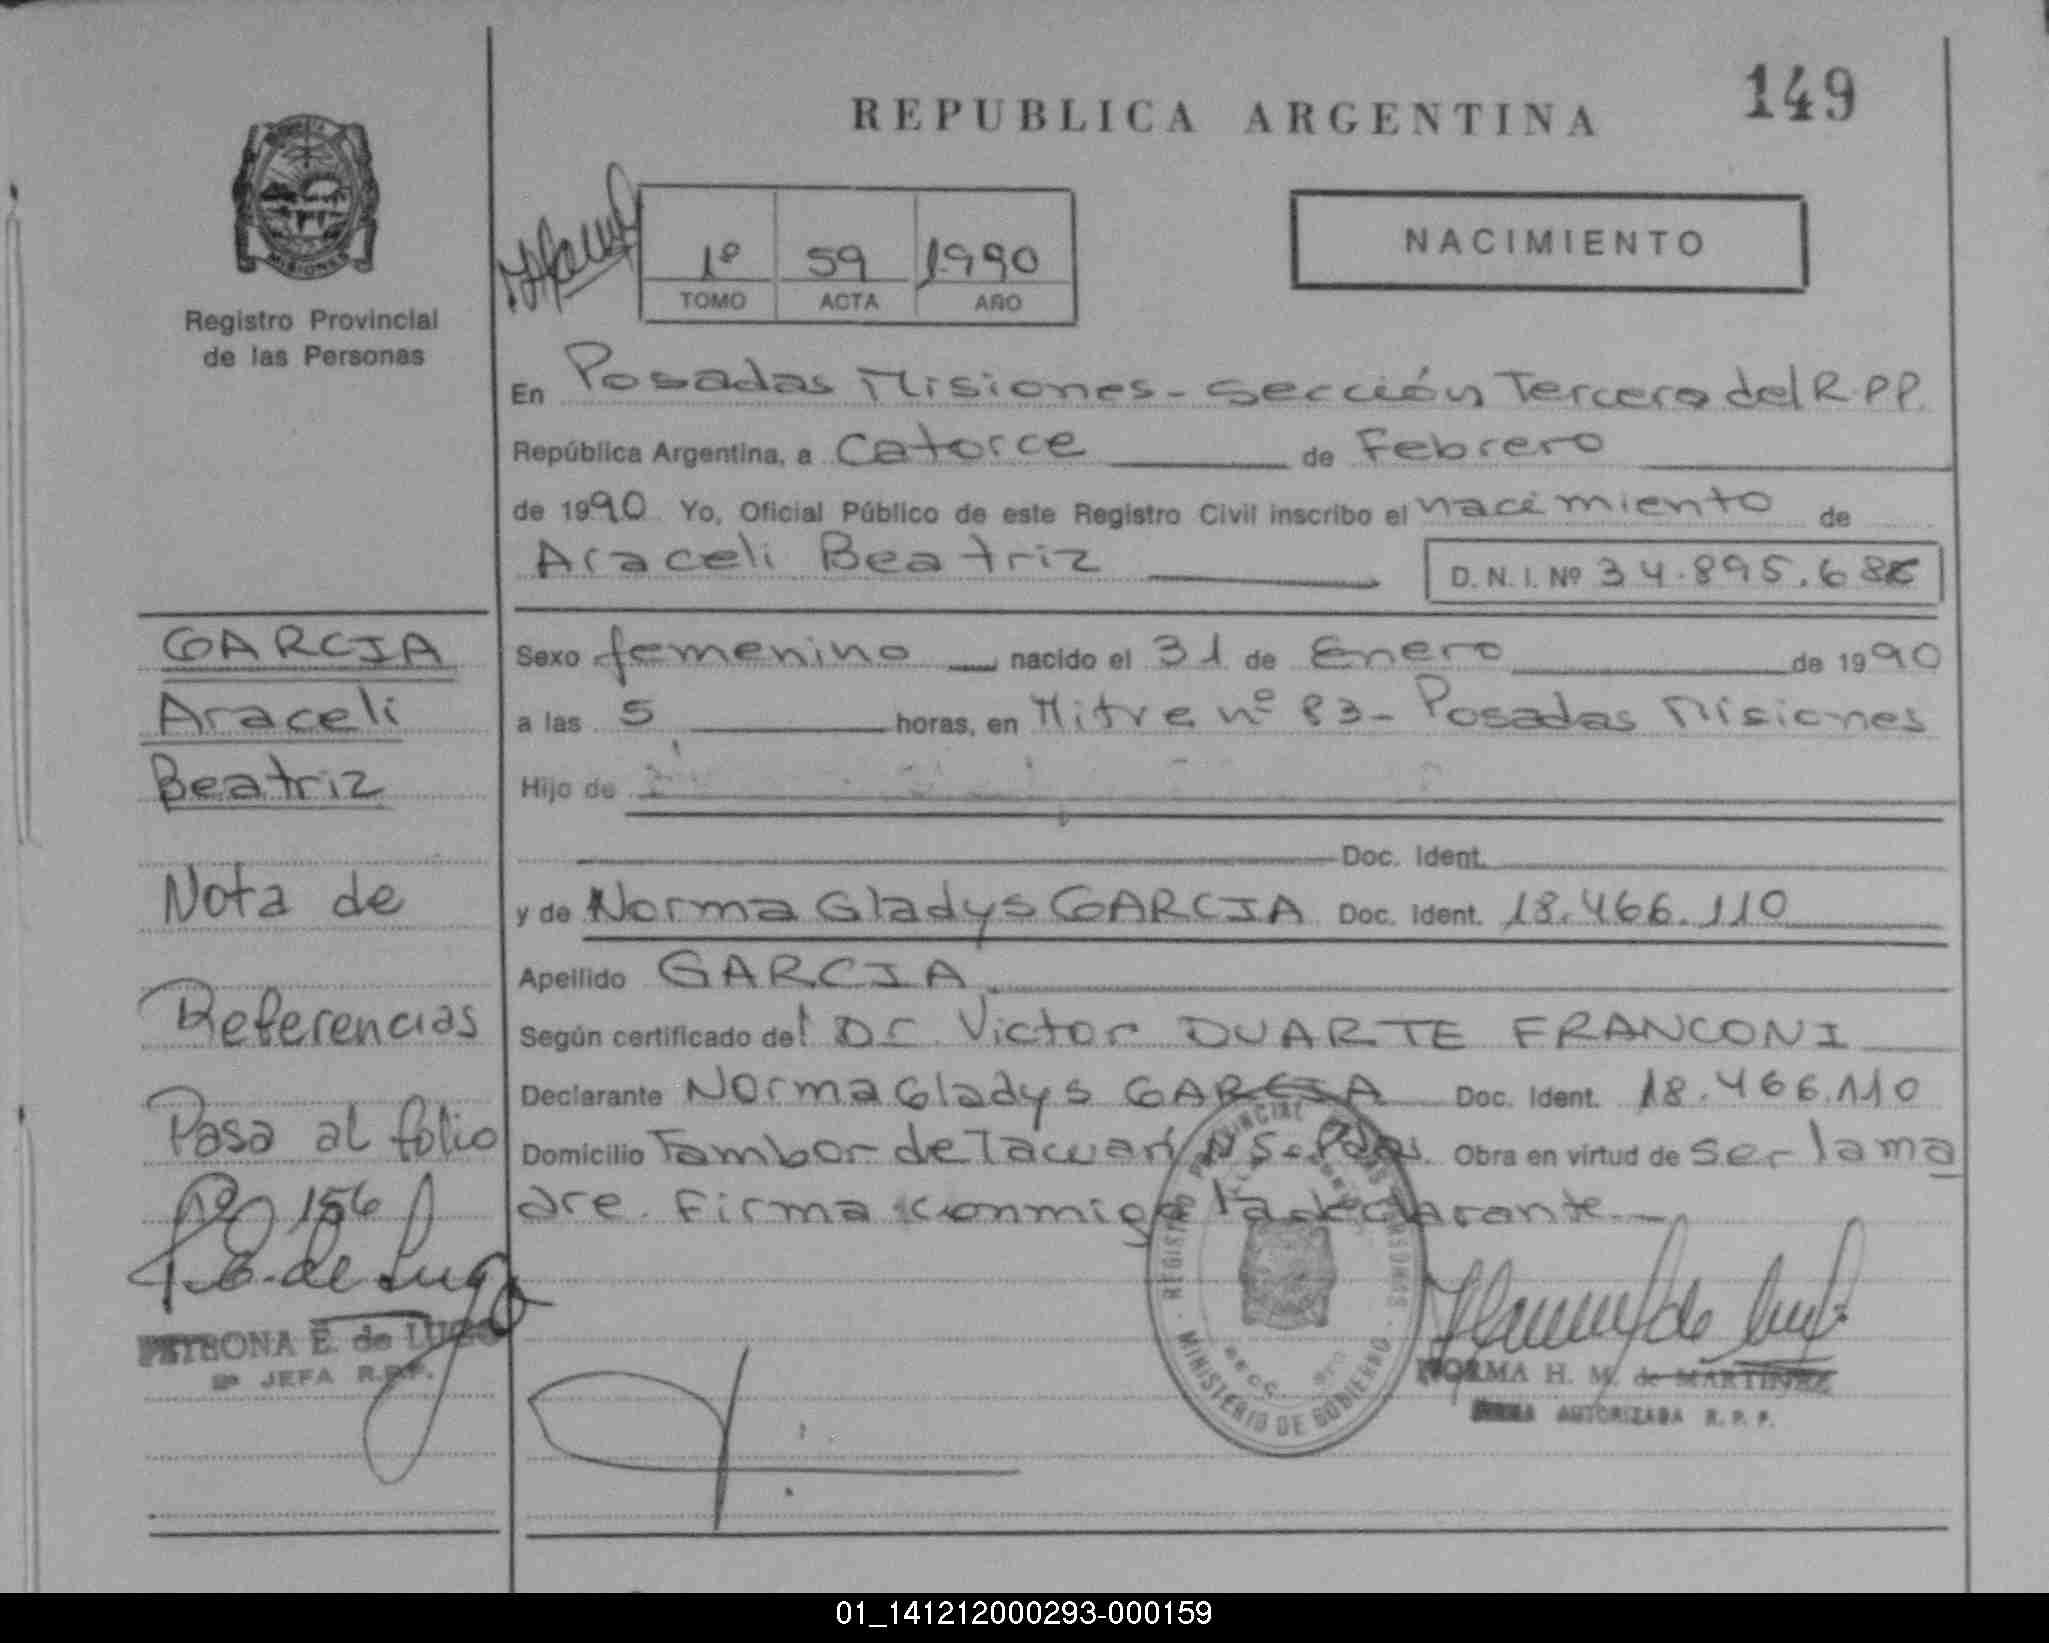 REPUBLICA ARGENTINA
149
MISIONES
Registro Provincial
de las Personas
1º 59 1990
TOMO ACTA AÑO
NACIMIENTO
En Posadas Misiones - Sección Tercera del R.P.P.
República Argentina, a Catorce de Febrero
de 1990 Yo, Oficial Público de este Registro Civil inscribo el nacimiento de
Araceli Beatriz D.N.I. Nº 34.895.68
Sexo femenino nacido el 31 de Enero de 1990
a las 5 horas, en Mitre nº 83 - Posadas Misiones
Hijo de
Doc. Ident.
y de Norma Gladys GARCIA Doc. Ident. 18.466.110
Apellido GARCIA
Según certificado del Dr. Victor DUARTE FRANCONI
Declarante Norma Gladys GARCIA Doc. Ident. 18.466.110
Domicilio Tambor de Tacuarí Nº S - Pdas. Obra en virtud de ser la ma
dre. Firma conmigo la declarante.
GARCIA
Araceli
Beatriz
Nota de
Referencias
Pasa al folio
nº 156
P. E. de Lugo
PETRONA E. de LUGO
2ª JEFA R.P.P.
REGISTRO PROVINCIAL DE LAS PERSONAS
MINISTERIO DE GOBIERNO
NORMA H. M. de MARTINEZ
FIRMA AUTORIZADA R.P.P.
01_141212000293-000159